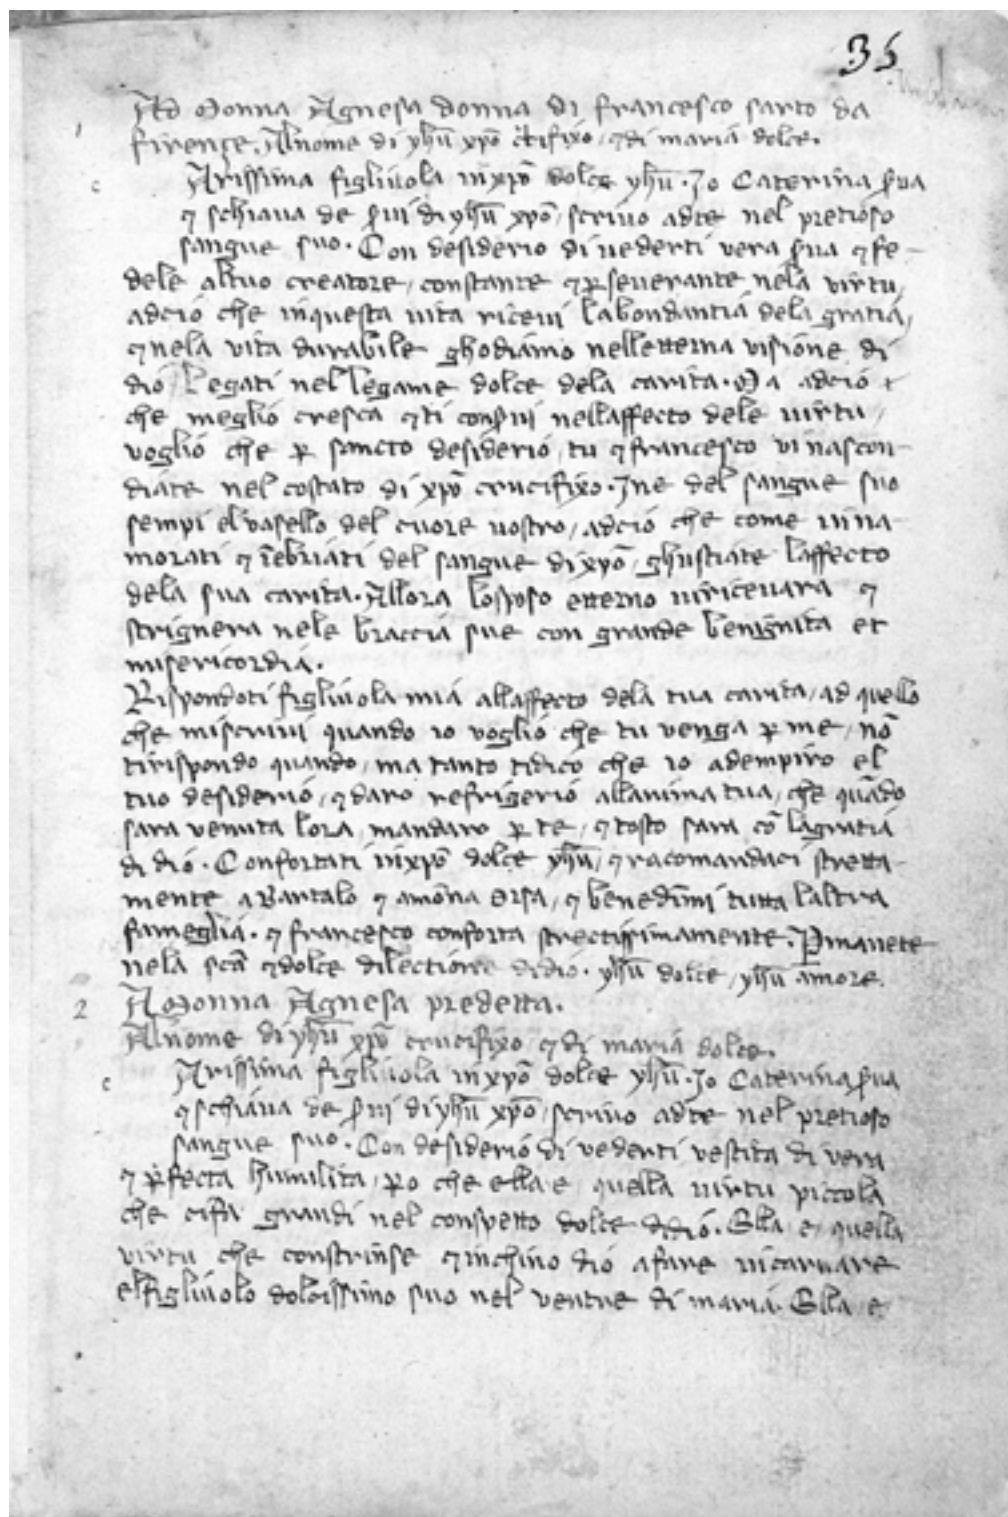 35
1 Ad Monna Agnesa donna di francesco sarto da
firençe. Al nome di yhū xpō crīfixo ⁊ di maria dolce.
c Arissima figliuola in xpō dolce yhū. Io Caterina ẜua
⁊ schiaua de ẜui di yhū xpō, scriuo adte nel pretioso
sangue suo. Con desiderio di uederti vera ẜua ⁊ fe-
dele altuo creatore, constante ⁊ ꝑseuerante nela virtu,
adcio che inquesta uita riceui labondantia dela gratia,
⁊ nela vita durabile ghodiamo nelletterna visione di
dio, Legati nel legame dolce dela carita. Ma adcio
che meglio cresca ⁊ ti conẜui nellaffecto dele uirtu,
voglio che ꝑ sancto desiderio, tu ⁊ francesco vi nascon-
diate nel costato di xpō crucifixo. Ine del sangue suo
sempi el vasello del cuore uostro, adcio che come inna
morati ⁊ īebriati del sangue di xpō, ghustiate laffecto
dela sua carita. Allora lo sposo etterno uiriceuara ⁊
strignera nele braccia sue con grande benignita et
misericordia.
Rispondoti figliuola mia allaffecto dela tua carita, ad quello
che miscriui quando io voglio che tu venga ꝑ me, nō
tirispondo quando, ma tanto tidico che io adempiro el
tuo desiderio, ⁊ daro refrigerio allanima tua, che quādo
sara venuta lora, mandaro ꝑ te, ⁊ tosto sara cō lagratia
di dio. Confortati in xpō dolce yhū, ⁊ racomandaci stretta-
mente a Bartalo ⁊ a mōna Orsa, ⁊ benedīmi tutta laltra
fameglia. ⁊ francesco conforta strectissimamente. Ꝑmanete
nela scā ⁊ dolce dilectione didio. yhū dolce, yhū amore.
2 A Monna Agnesa predetta.
Al nome di yhū xpō crucifixo ⁊ di maria dolce.
c Arissima figliuola in xpō dolce yhū. Io Caterina ẜua
⁊ schiaua de ẜui di yhū xpō, scriuo adte nel pretioso
sangue suo. Con desiderio di vederti vestita di vera
⁊ ꝑfecta humilita, ꝑo che ella e quella uirtu piccola
che cifa grandi nel conspetto dolce didio. Ella e quella
virtu che constrinse ⁊ inchino dio a fare incarnare
el figliuolo dolcissimo suo nel ventre di maria. Ella e